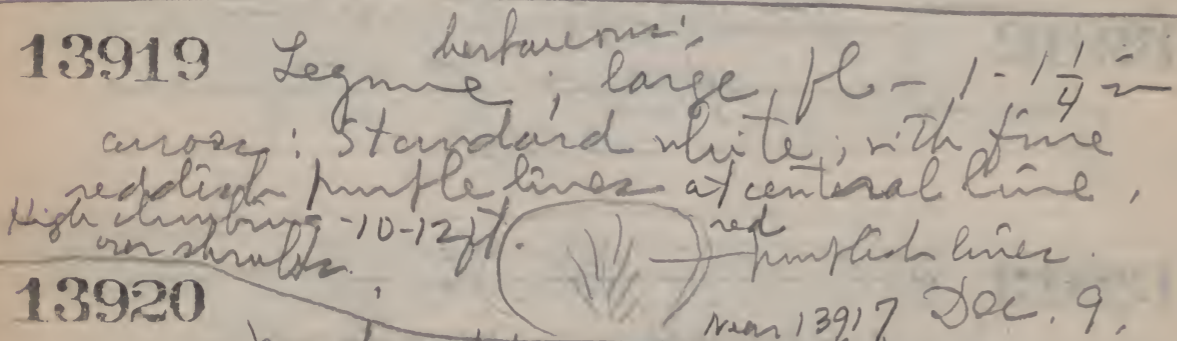 herbaceous;
13919 Legume; large fl - 1 - 1 1/4 in
across; Standard white; with fine
reddish purple lines at central line,
High climbing - 10-12 ft. red
over shrubs. purplish lines.
13920 Near 13917 Dec. 9,